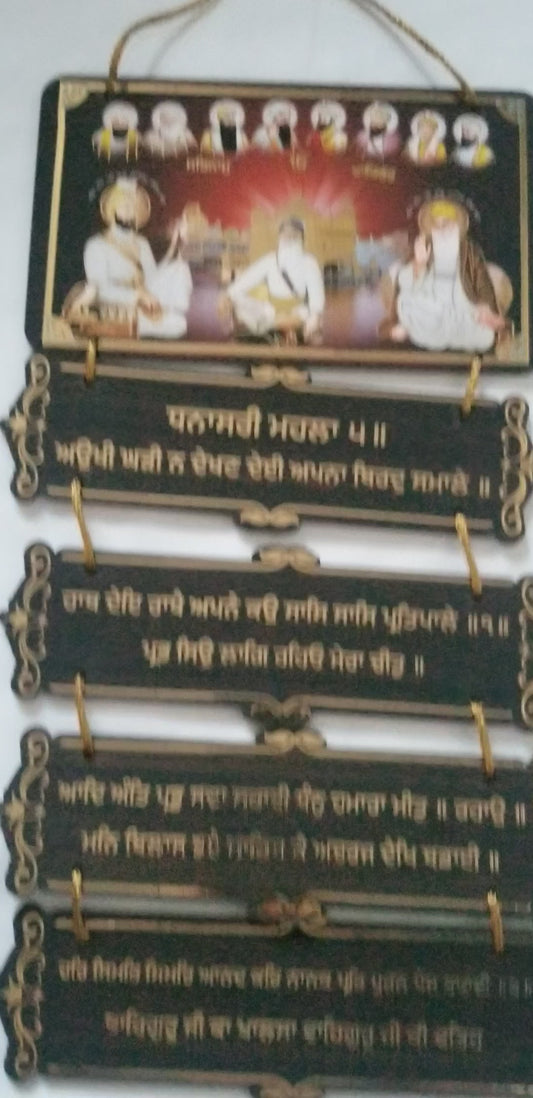 ਧਨਾਸਰੀ ਮਹਲਾ ੫ ॥
ਅਉਖੀ ਘੜੀ ਨ ਦੇਖਣ ਦੇਈ ਅਪਨਾ ਬਿਰਦੁ ਸਮਾਲੇ ॥
ਹਾਥ ਦੇਇ ਰਾਖੈ ਅਪਨੇ ਕਉ ਸਾਸਿ ਸਾਸਿ ਪ੍ਰਤਿਪਾਲੇ ॥੧॥
ਪ੍ਰਭ ਸਿਉ ਲਾਗਿ ਰਹਿਓ ਮੇਰਾ ਚੀਤੁ ॥
ਆਦਿ ਅੰਤਿ ਪ੍ਰਭੁ ਸਦਾ ਸਹਾਈ ਧੰਨੁ ਹਮਾਰਾ ਮੀਤੁ ॥ ਰਹਾਉ ॥
ਮਨਿ ਬਿਲਾਸ ਭਏ ਸਾਹਿਬ ਕੇ ਅਚਰਜ ਦੇਖਿ ਬਡਾਈ ॥
ਹਰਿ ਸਿਮਰਿ ਸਿਮਰਿ ਆਨਦ ਕਰਿ ਨਾਨਕ ਪ੍ਰਭਿ ਪੂਰਨ ਪੈਜ
ਵਾਹਿਗੁਰੂ ਜੀ ਕਾ ਖਾਲਸਾ ਵਾਹਿਗੁਰੂ ਜੀ ਕੀ ਫਤਿਹ